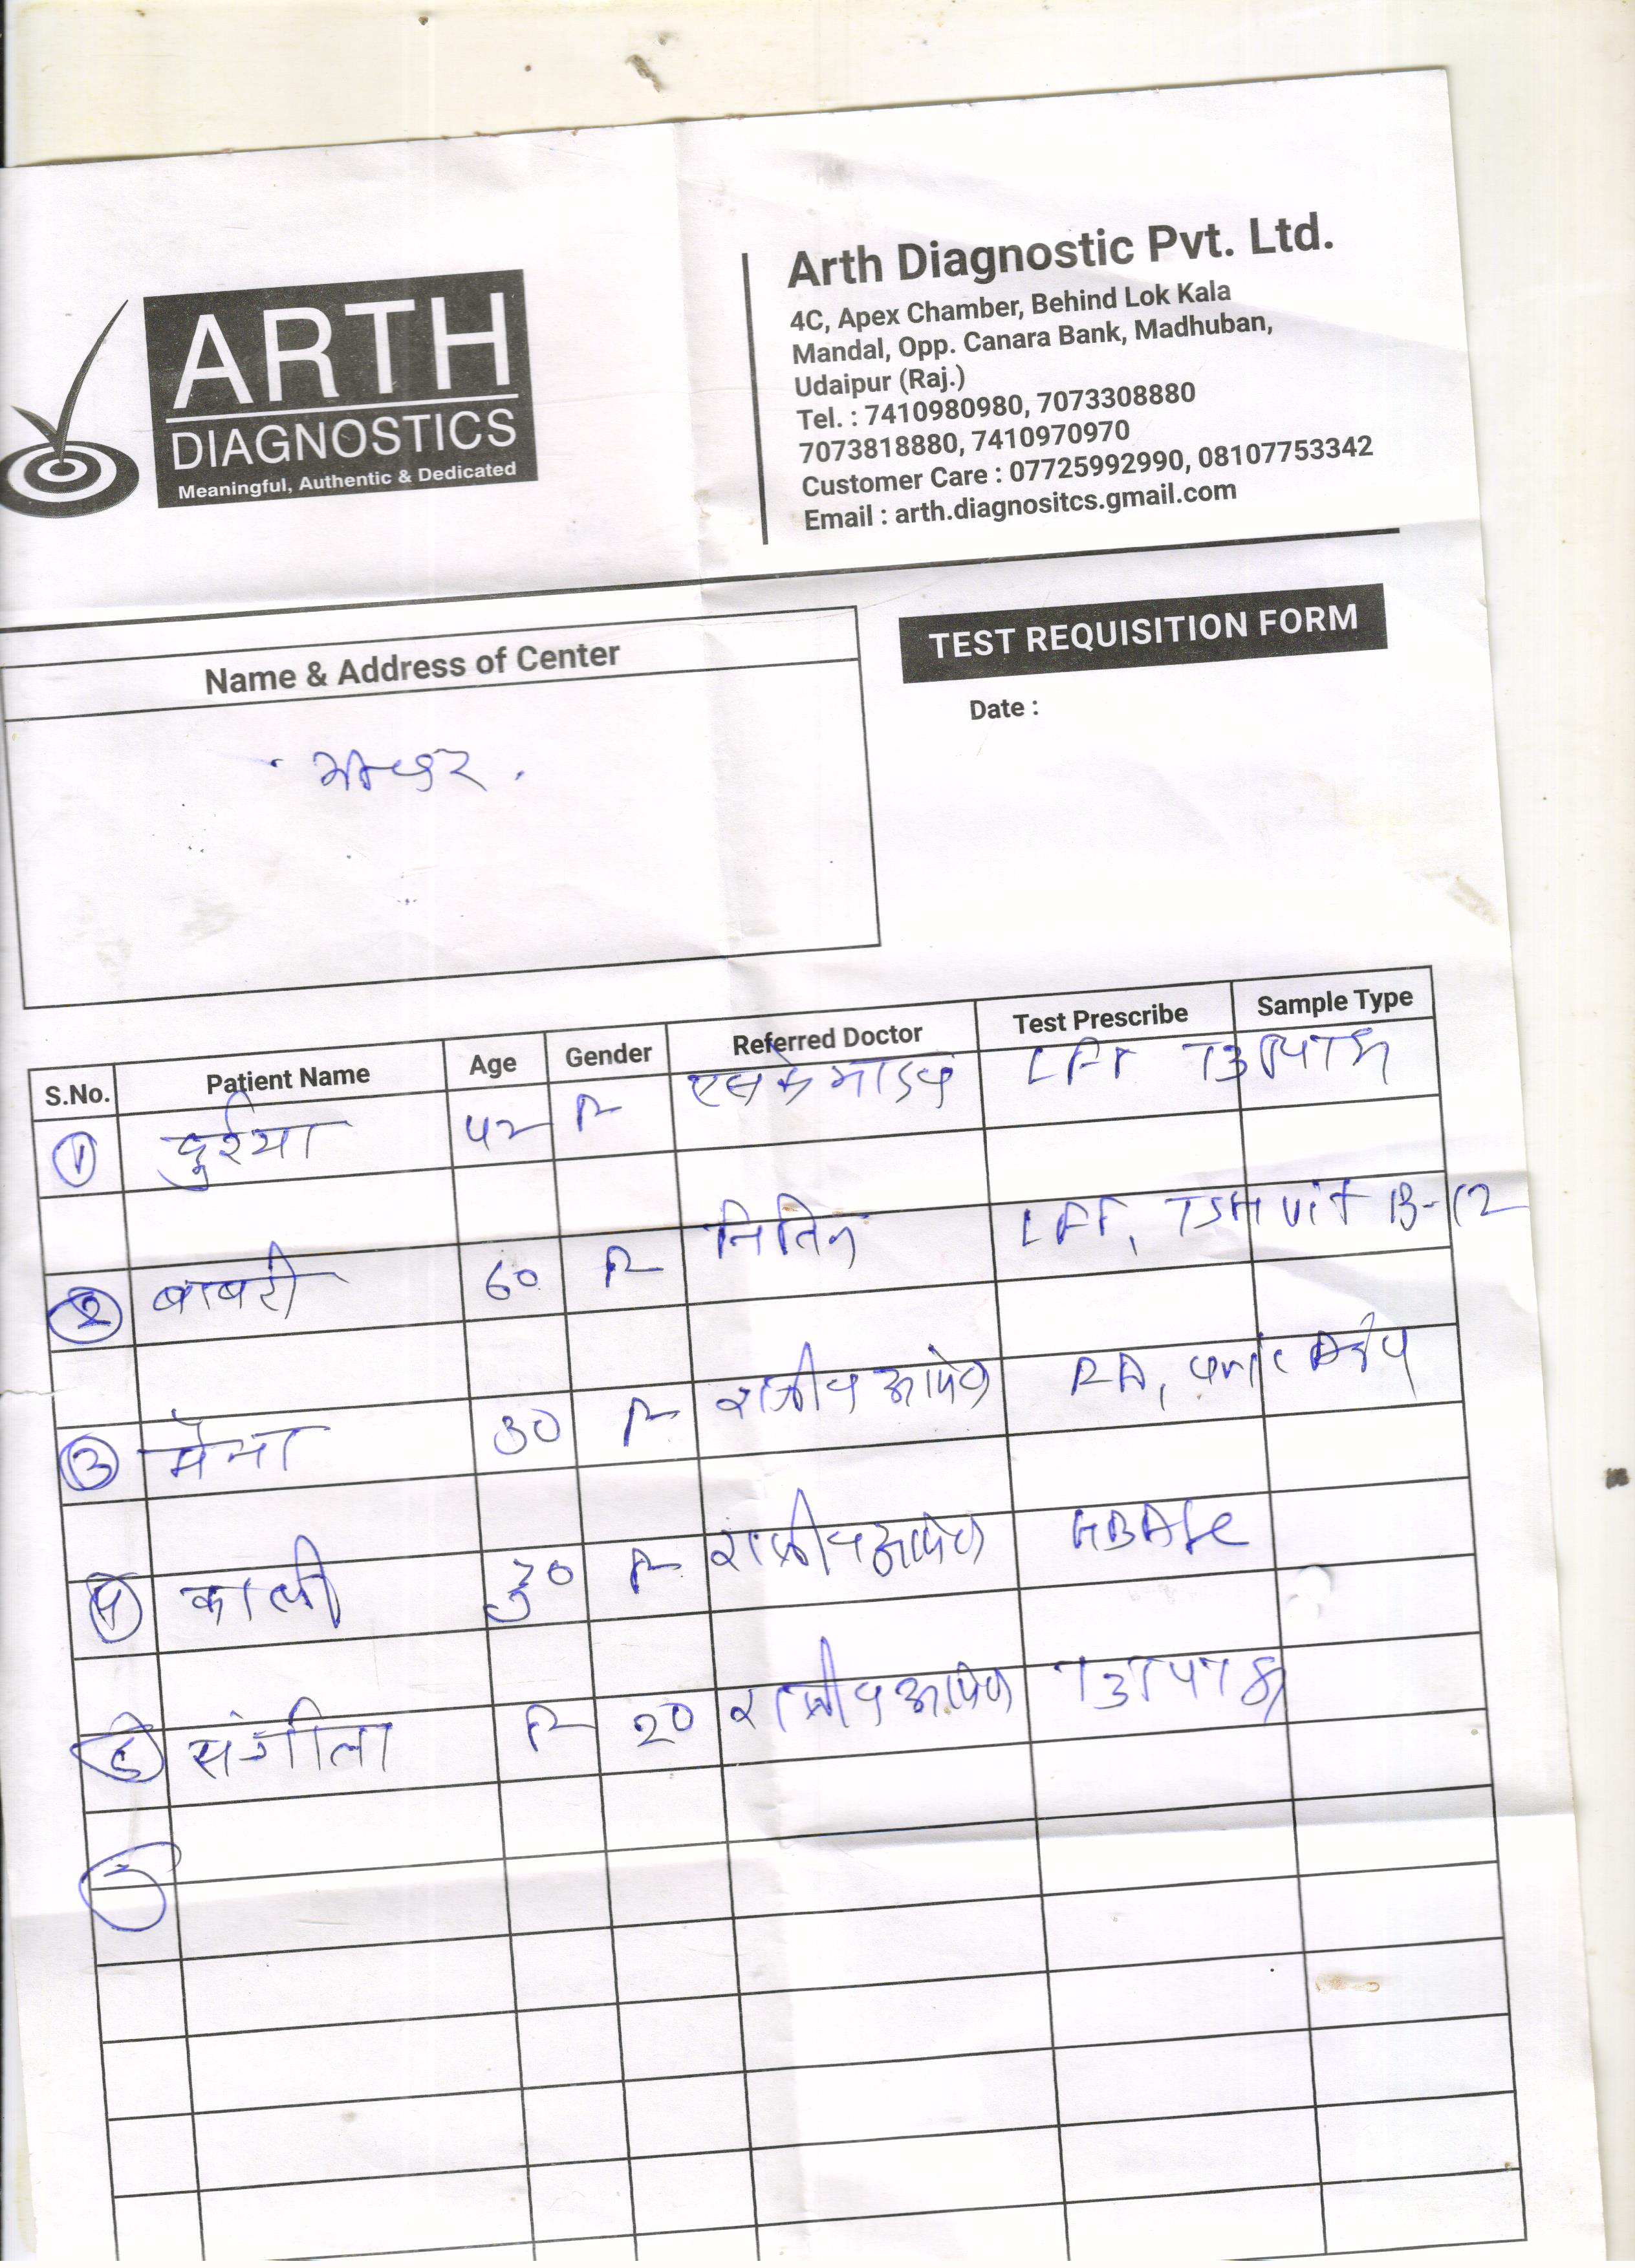 ARTH
DIAGNOSTICS
Meaningful, Authentic & Dedicated
Arth Diagnostic Pvt. Ltd.
4C, Apex Chamber, Behind Lok Kala
Mandal, Opp. Canara Bank, Madhuban,
Udaipur (Raj.)
Tel. : 7410980980, 7073308880
7073818880, 7410970970
Customer Care : 07725992990, 08107753342
Email : arth.diagnositcs.gmail.com
Name & Address of Center
TEST REQUISITION FORM
Date :
S.No. Patient Name Age Gender Referred Doctor Test Prescribe Sample Type
1 F LFT
2 बाबरी 60 F नितिन LFT, TSH Vit B-12
3 30 F राजीव RA,
4 काली 30 F राजीव
5 संगीता F 20 राजीव